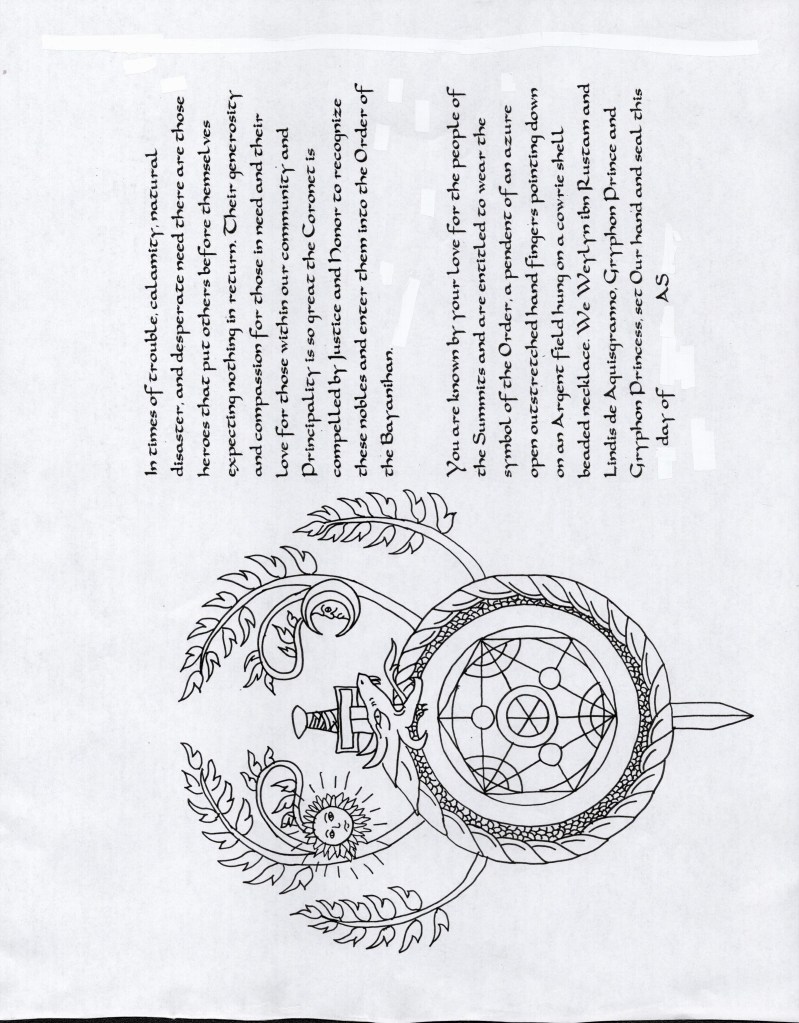 In times of trouble, calamity, natural
disaster, and desperate need there are those
heroes that put others before themselves
expecting nothing in return. Their generosity
and compassion for those in need and their
love for those within our community and
Principality is so great the Coronet is
compelled by Justice and Honor to recognize
these nobles and enter them into the Order of
the Bayanihan.
You are known by your love for the people of
the Summits and are entitled to wear the
symbol of the Order, a pendent of an azure
open outstretched hand fingers pointing down
on an Argent field hung on a cowrie shell
beaded necklace. We Weylyn ibn Rustam and
Lindis de Aquisgranno, Gryphon Prince and
Gryphon Princess, set Our hand and seal this
day of AS